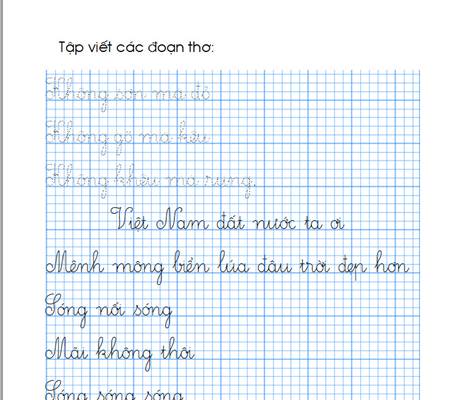 Tập viết các đoạn thơ:
Không sơn mà đỏ
Không gõ mà kêu
Không khều mà rụng.
Việt Nam đất nước ta ơi
Mênh mông biển lúa đâu trời đẹp hơn
Sóng nối sóng
Mãi không thôi
Sóng sóng sóng